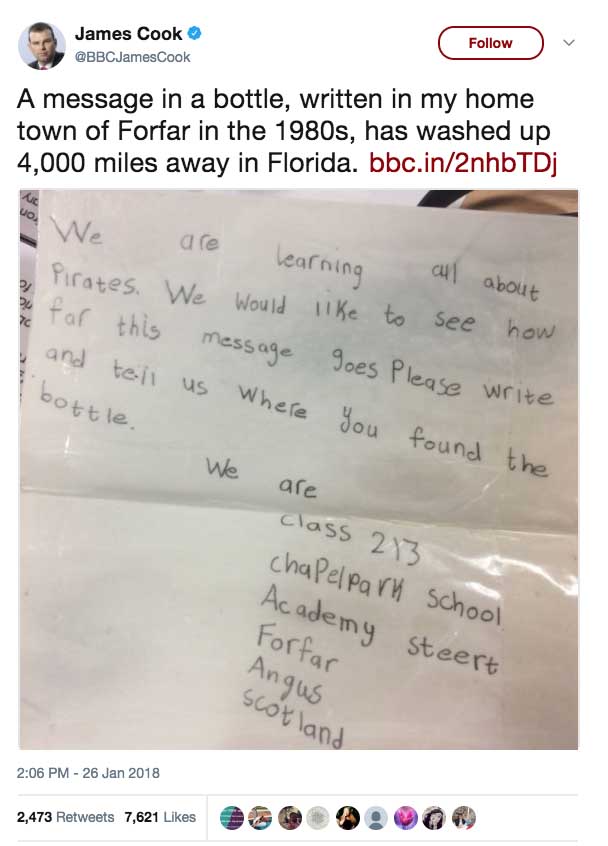 James Cook
@BBCJamesCook
Follow
A message in a bottle, written in my home
town of Forfar in the 1980s, has washed up
4,000 miles away in Florida. bbc.in/2nhbTDj
We are learning all about
Pirates. We would like to see how
far this message goes Please write
and tell us where you found the
bottle.
We are
class 213
chapelpark school
Academy steert
Forfar
Angus
scotland
2:06 PM - 26 Jan 2018
2,473 Retweets 7,621 Likes